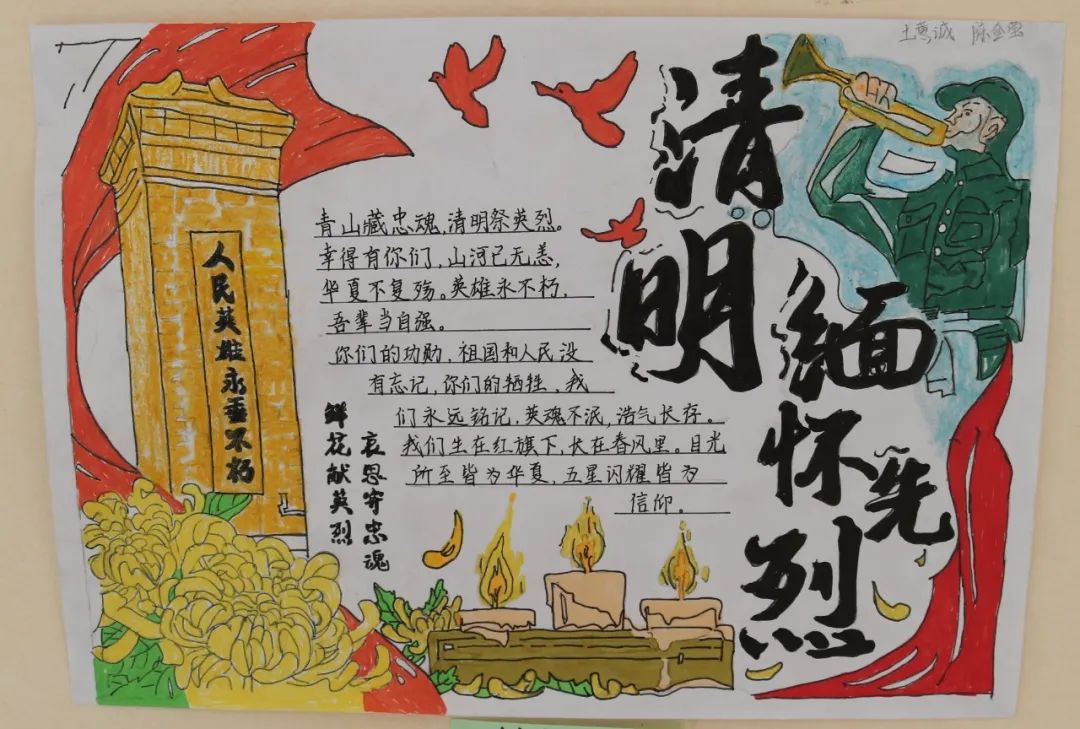 清明
缅怀先烈
人民英雄永垂不朽
青山藏忠魂,清明祭英烈。
幸得有你们,山河已无恙,
华夏不复殇。英雄永不朽,
吾辈当自强。
你们的功勋,祖国和人民没
有忘记,你们的牺牲,我
们永远铭记,英魂不泯,浩气长存。
我们生在红旗下,长在春风里。目光
所至皆为华夏,五星闪耀皆为
信仰。
鲜花献英烈
哀思寄忠魂